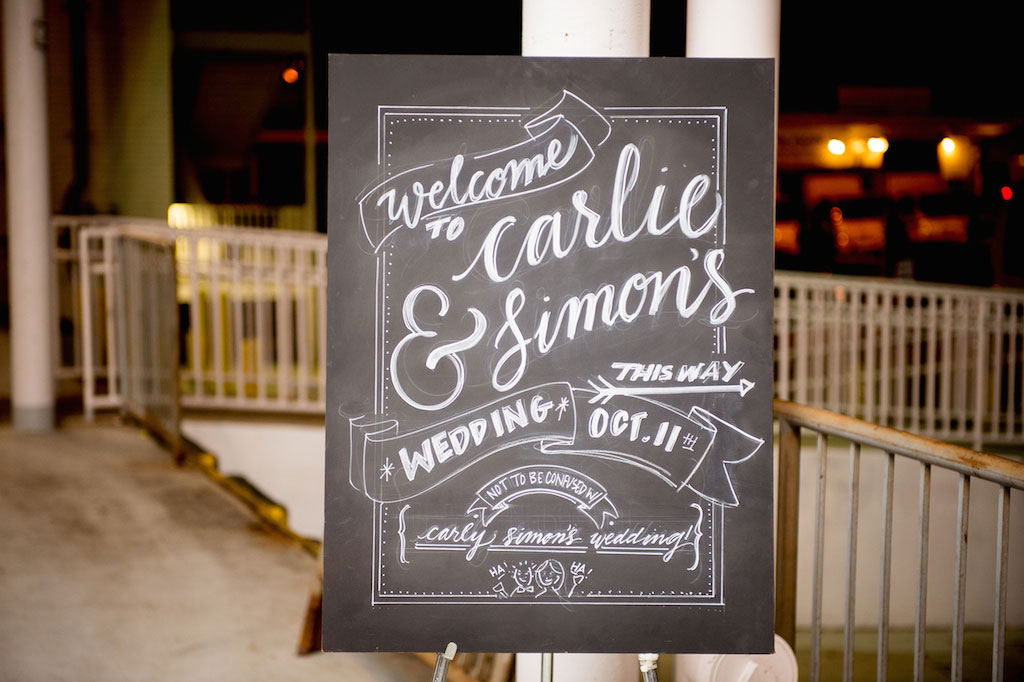 welcome
TO carlie
& Simon's
THIS WAY
*WEDDING* OCT. 11TH
NOT TO BE CONFUSED W/
{carly simon's wedding!}
HA! HA!